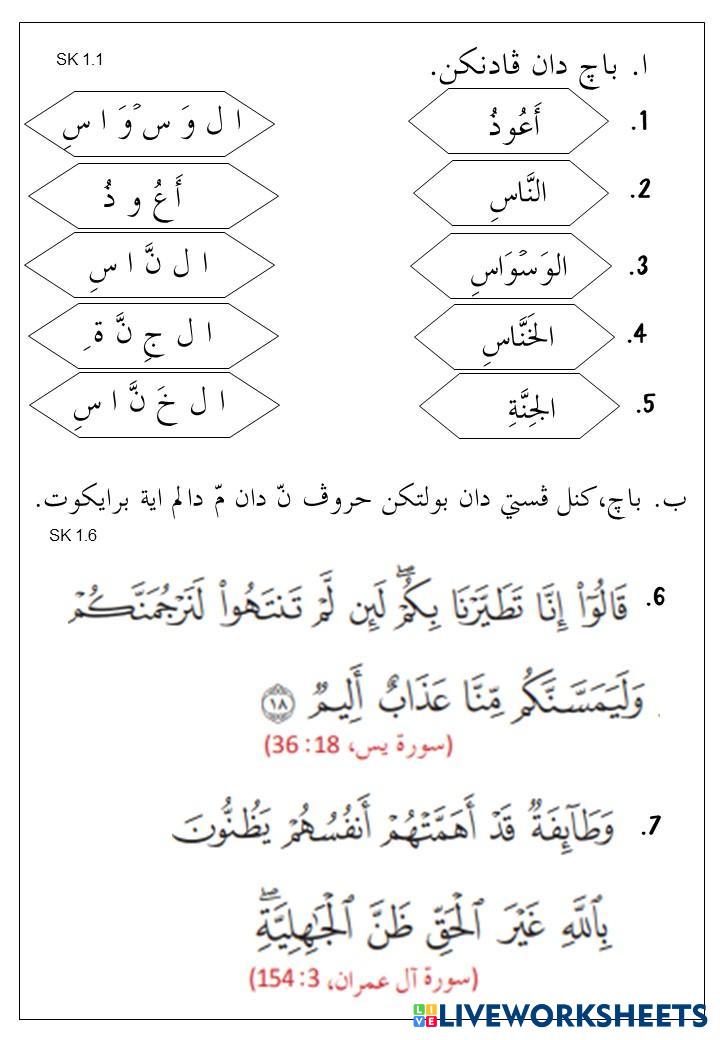 SK 1.1
ا. باچ دان ڤادنكن.
1. أَعُوذُ
ا ل وَ سۡ وَ ا سِ
2. النَّاسِ
أَ عُ و ذُ
3. الوَسۡوَاسِ
ا ل نَّ ا سِ
4. الخَنَّاسِ
ا ل جِ نَّ ةِ
5. الجِنَّةِ
ا ل خَ نَّ ا سِ
ب. باچ،كنل ڤستي دان بولتكن حروف نّ دان مّ دالم اية برايكوت.
SK 1.6
6. قَالُوٓاْ إِنَّا تَطَيَّرۡنَا بِكُمۡۖ لَئِن لَّمۡ تَنتَهُواْ لَنَرۡجُمَنَّكُمۡ
وَلَيَمَسَّنَّكُم مِّنَّا عَذَابٌ أَلِيمٞ ١٨
(سورة يس، 18 :36)
7. وَطَآئِفَةٞ قَدۡ أَهَمَّتۡهُمۡ أَنفُسُهُمۡ يَظُنُّونَ
بِٱللَّهِ غَيۡرَ ٱلۡحَقِّ ظَنَّ ٱلۡجَٰهِلِيَّةِۖ
(سورة آل عمران، 3: 154)
LIVEWORKSHEETS